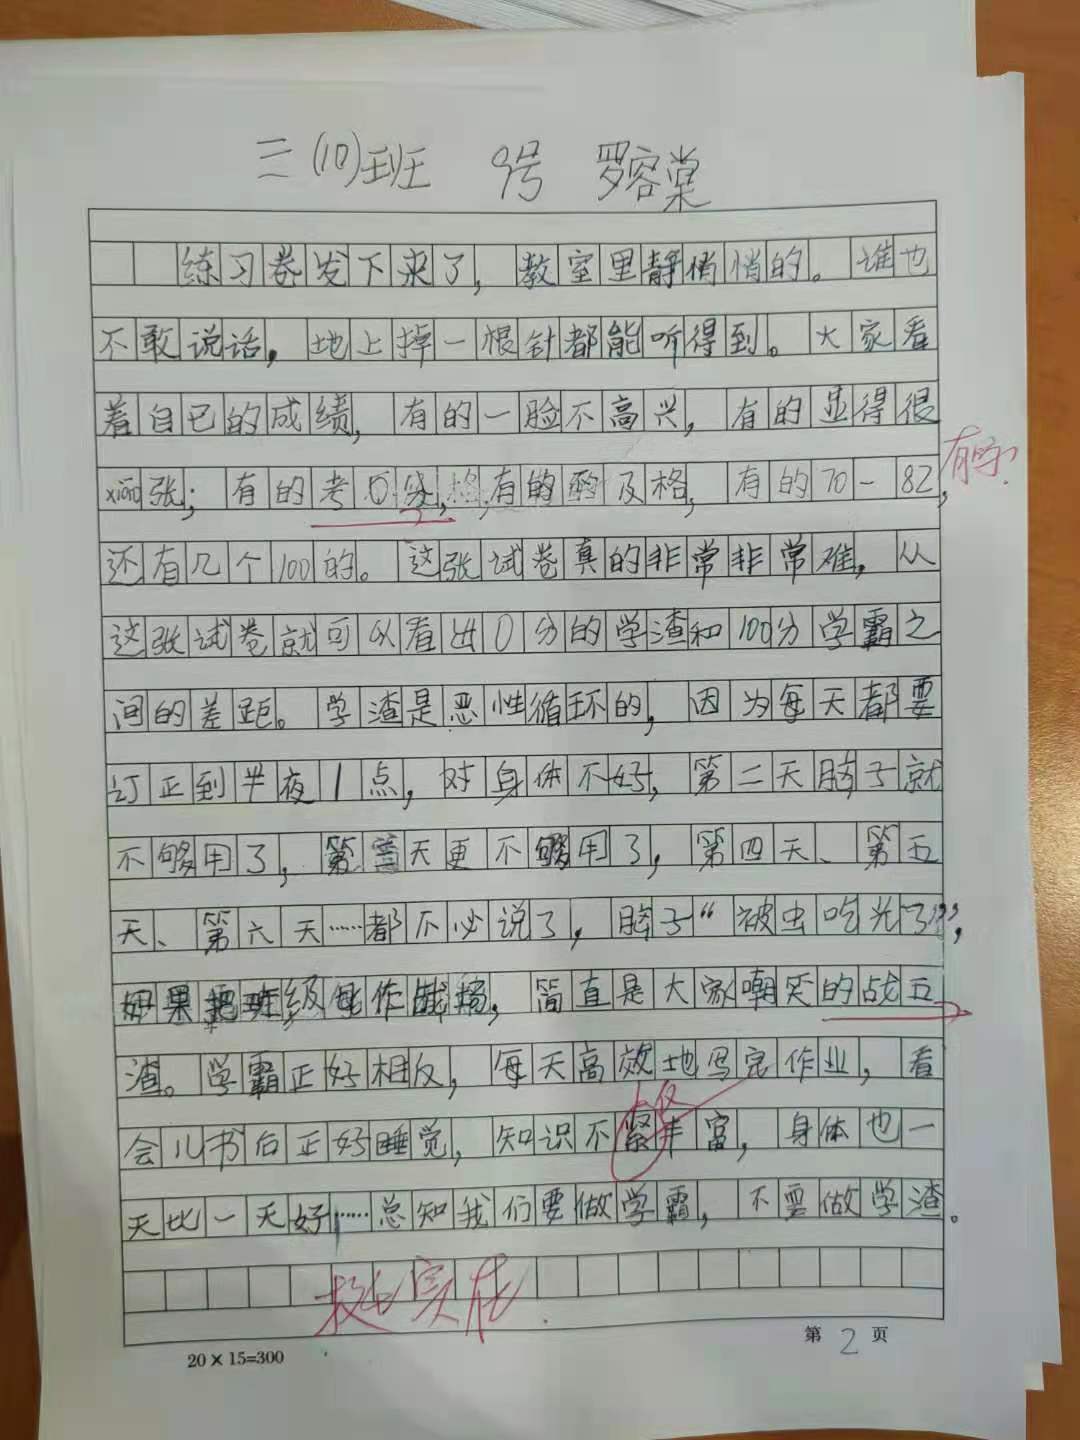 三(10)班 9号 罗容棠
练习卷发下来了,教室里静悄悄的。谁也
不敢说话,地上掉一根针都能听得到。大家看
着自己的成绩,有的一脸不高兴,有的显得很
张;有的考0分,格,有的及格,有的70-82,
有吗?
还有几个100的。这张试卷真的非常非常难,从
这张试卷就可以看出0分的学渣和100分学霸之
间的差距。学渣是恶性循环的,因为每天都要
订正到半夜1点,对身体不好,第二天脑子就
不够用了,第三天更不够用了,第四天、第五
天、第六天……都不必说了,脑子“被虫吃光了”,
如果把班级当作战场,简直是大家嘲笑的战五
渣。学霸正好相反,每天高效地写完作业,看
会儿书后正好睡觉,知识不紧丰富,身体也一
仅
天比一天好……总知我们要做学霸,不要做学渣。
挺实在
20×15=300
第2页